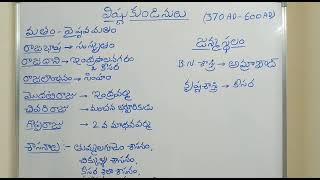 విష్ణుకుండినులు (370 AD-600 AD)
మతం - వైష్ణవ మతం
రాజభాష - సంస్కృతం
రాజధాని - ఇంద్రపాలనగరం
కీసర
రాజలాంఛనం - సింహం
మొదటిరాజు - ఇంద్రవర్మ
చివరి రాజు - మంచన భట్టారకుడు
గొప్పరాజు - 2వ మాధవవర్మ
శాసనాలు - తుమ్మలగూడెం శాసనం,
చిక్కుళ్ళ శాసనం,
కీసర శాసనం,
జన్మస్థలం
B.N శాస్త్రి → అమ్రాబాద్
కృష్ణశాస్త్రి → కీసర